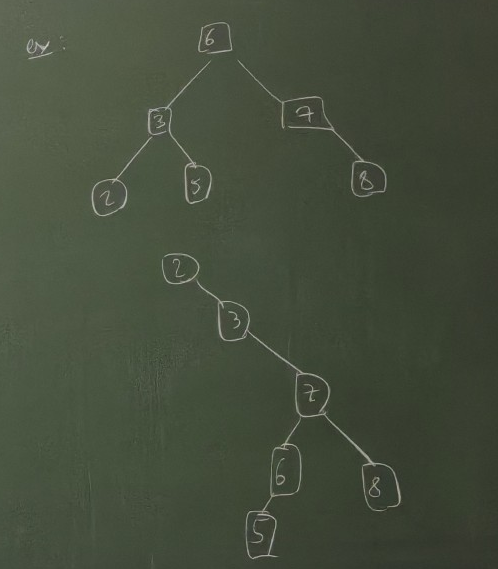 ex:
6
3 7
2 5 8
2
3
7
6 8
5